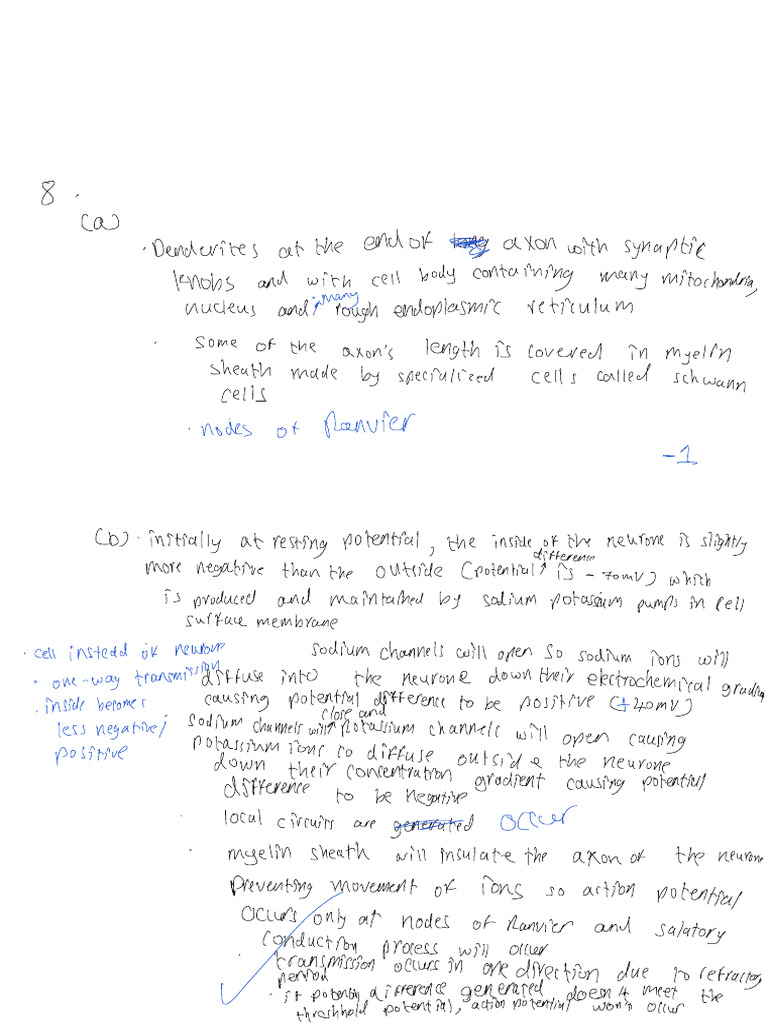 8.
(a)
· Denderites at the end of axon with synaptic
knobs and with cell body containing many mitochondria,
nucleus and many rough endoplasmic reticulum
· Some of the axon's length is covered in myelin
sheath made by specialised cells called schwann
cells
· nodes of Ranvier
-1
(b) · initially at resting potential, the inside of the neurone is slightly
more negative than the outside (potential difference is -70mV) which
is produced and maintained by sodium potassium pumps in cell
surface membrane
· cell instead of neurone
· one-way transmission
· inside becomes
less negative/
positive
sodium channels will open so sodium ions will
diffuse into the neurone down their electrochemical gradien
causing potential difference to be positive (+40mV)
sodium channels will close and potassium channels will open causing
potassium ions to diffuse outside the neurone
down their concentration gradient causing potential
difference to be negative
· local circuits are generated occur
· myelin sheath will insulate the axon of the neurone
preventing movement of ions so action potential
occurs only at nodes of Ranvier and salatory
conduction process will occur
· transmission occurs in one direction due to refractory
period
· if potential difference generated doesn't meet the
threshhold potential, action potential won't occur